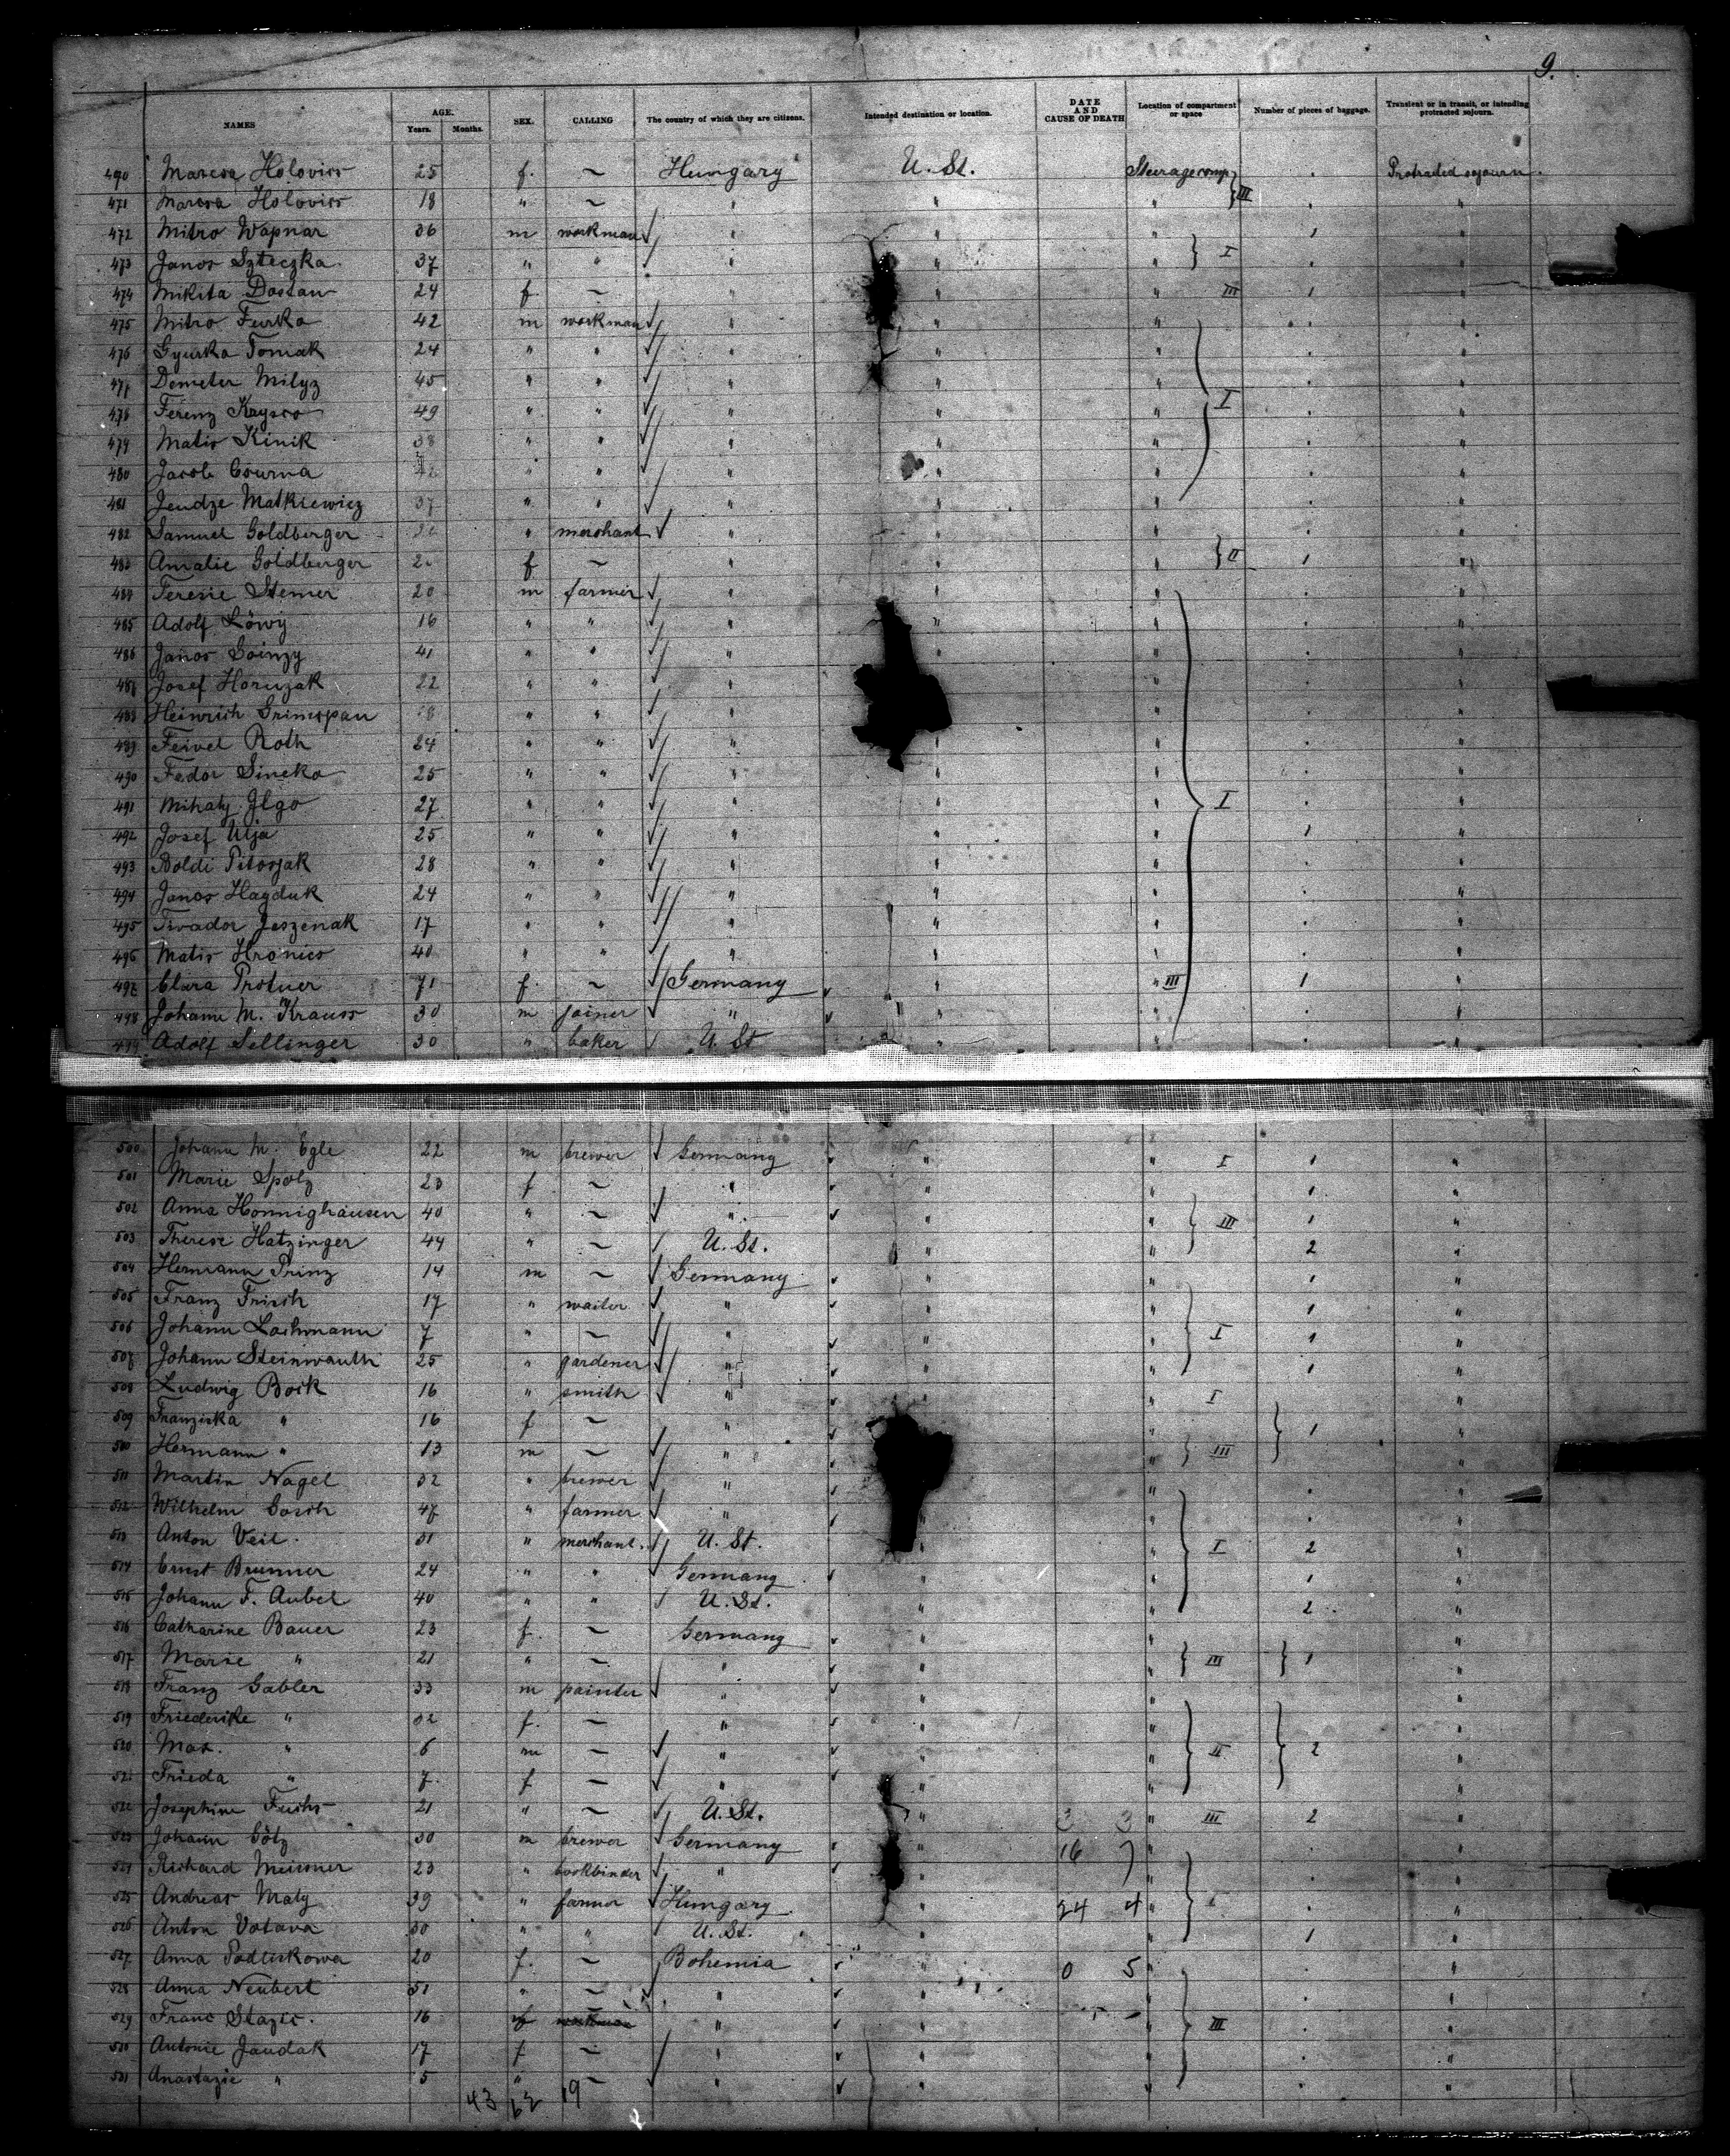 9.
NAMES AGE. Years. Months. SEX. CALLING The country of which they are citizens. Intended destination or location. DATE AND CAUSE OF DEATH Location of compartment or space Number of pieces of baggage. Transient or in transit, or intending protracted sojourn.
490 25 f. ~ Hungary U. St. Steerage comp. Protracted sojourn
471 18 " ~ " " " III "
472 Mitro Wapnar 36 m workman " " " 1 "
473 Janos Szteczka 37 " " " " " I "
474 Mikita 24 f ~ " " " III 1 "
475 Mitro Furka 42 m workman " " " "
476 Gyurka Tomak 24 " " " " " "
477 Demeter Milyz 45 " " " " " "
478 Ferenz 49 " " " " " I "
479 Matis Kinik 38 " " " " " "
480 Jacob " " " " " "
481 Jendze Matkiewicz 37 " " " " " "
482 Samuel Goldberger " merchant " " " "
483 Amalie Goldberger f ~ " " " II 1 "
484 Teresie Stemer 20 m farmer " " " "
485 Adolf Löwy 16 " " " " " "
486 Janos 41 " " " " " "
487 Josef Horuzak 22 " " " " " "
488 Heinrich Grimspan " " " " " "
489 Feivel Roth 24 " " " " " "
490 Fedor Sincka 25 " " " " " "
491 Mihaly Ilgo 27 " " " " " I "
492 Josef Ulja 25 " " " " " 1 "
493 Boldi Pitosjak 28 " " " " " "
494 Janos Hagduk 24 " " " " " "
495 Tivador Jeszenak 17 " " " " " "
496 Matis Hronics 40 " " " " " "
497 Clara Protner 71 f. ~ Germany " " III 1 "
498 Johann M. Krauss 30 m joiner " " " "
499 Adolf Sellinger 30 " baker U. St " " "
500 Johann M. Egle 22 m brewer Germany " " I 1 "
501 Marie Spolz 23 f ~ " " " 1 "
502 Anna Honnighausen 40 " ~ " " " III 1 "
503 Therese Hatzinger 44 " ~ U. St. " " 2 "
504 Hermann Prinz 14 m ~ Germany " " 1 "
505 Franz Frisch 17 " waiter " " " 1 "
506 Johann Lachmann 7 " ~ " " " I 1 "
507 Johann Steinwauth 25 " gardener " " " 1 "
508 Ludwig Bock 16 " smith " " " I "
509 Franziska " 16 f ~ " " " 1 "
510 Hermann " 13 m ~ " " " III "
511 Martin Nagel 32 " brewer " " " "
512 Wilhelm Gosch 47 " farmer " " " "
513 Anton Veit 31 " merchant U. St. " " I 2 "
514 Ernst Brunner 24 " " Germany " " 1 "
515 Johann F. Aubel 40 " " U. St. " " 2 "
516 Catharine Bauer 23 f. ~ Germany " " "
517 Marie " 21 " ~ " " " III 1 "
518 Franz Gabler 33 m painter " " " "
519 Friederike " 32 f. ~ " " " "
520 Max " 6 m ~ " " " II 2 "
521 Frieda " 7 f ~ " " " "
522 Josephine Fuchs 21 " ~ U. St. " 3 3 " III 2 "
523 Johann Götz 30 m brewer Germany " 16 7 " "
524 Richard Meissner 23 " bookbinder " " " "
525 Andreas Maly 39 " farmer Hungary " 24 4 " I "
526 Anton Votava 30 " " U. St. " " 1 "
527 Anna Podliskowa 20 f. ~ Bohemia " 0 5 " "
528 Anna Neubert 51 " ~ " " " "
529 Franc Stazic. 16 workman " " " III "
530 Antonie Jandak 17 f ~ " " " "
531 Anastazie " 5 " ~ " " " "
43 62 19